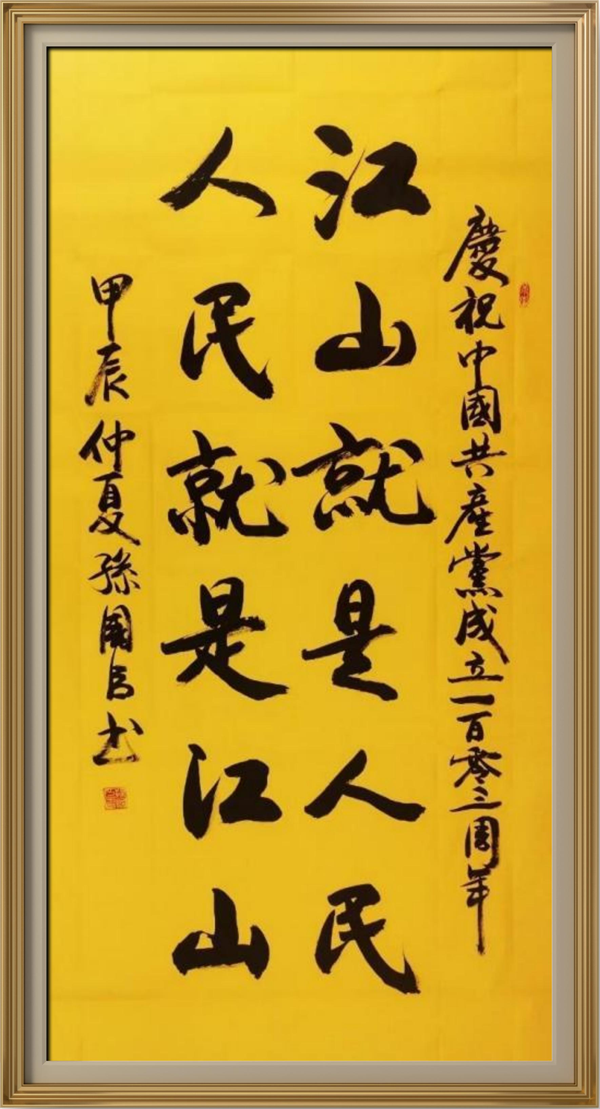 慶祝中國共產黨成立一百零三周年
江山就是人民
人民就是江山
甲辰仲夏孫國吉书